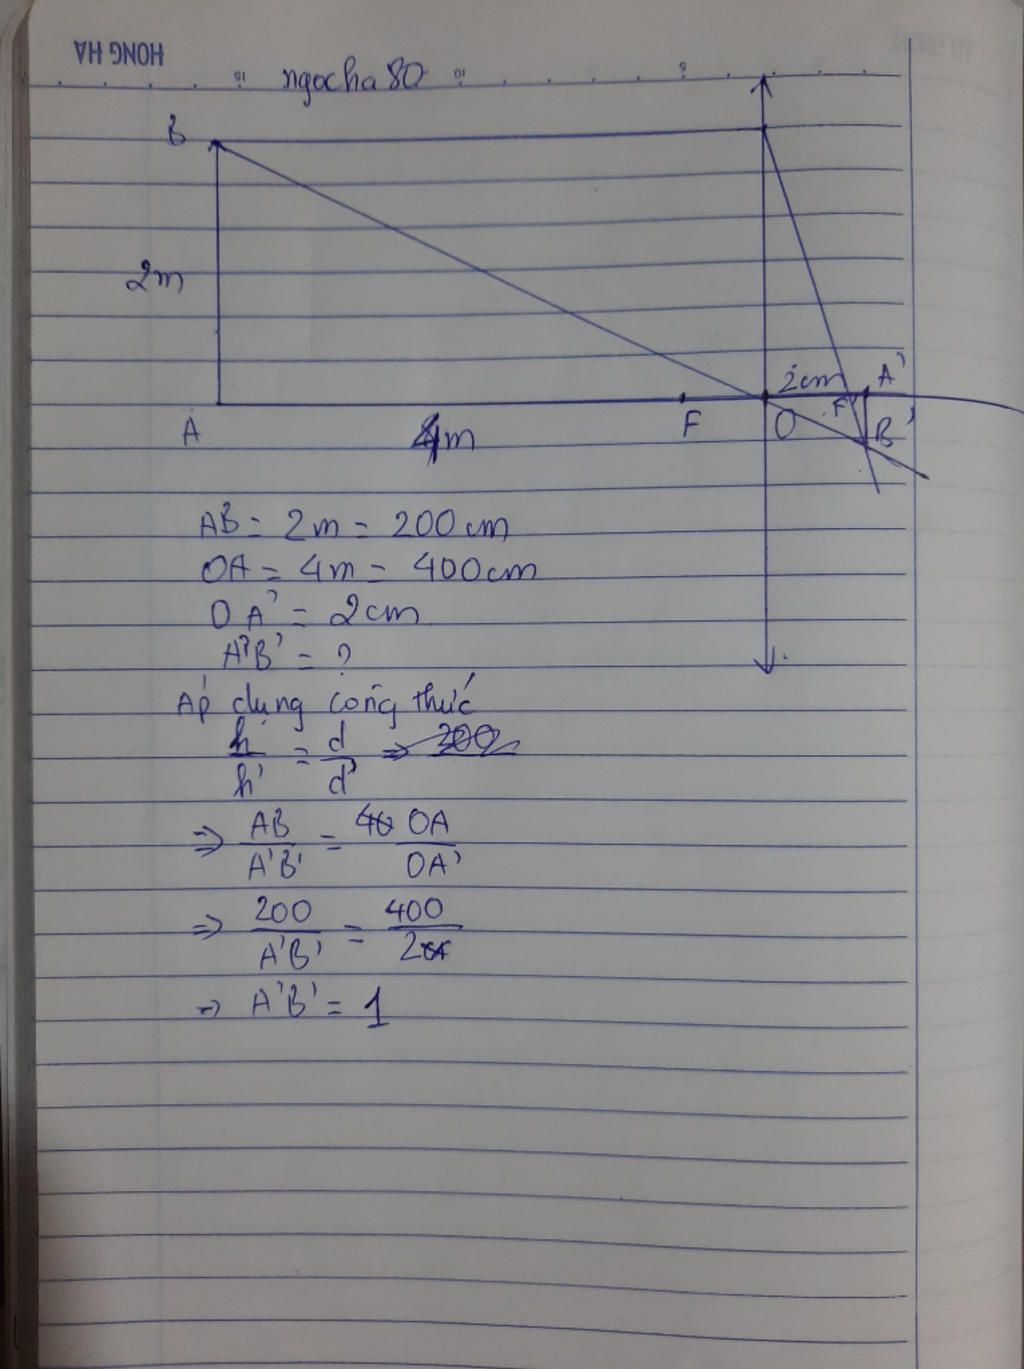 HONG HA
ngocha80
B
2m
2cm
A'
A
4m
F
O
F'
B'
AB = 2m = 200cm
OA = 4m = 400cm
OA' = 2cm
A'B' = ?
Áp dụng công thức
h/h' = d/d' =>
=> AB/A'B' = OA/OA'
=> 200/A'B' = 400/2
=> A'B' = 1